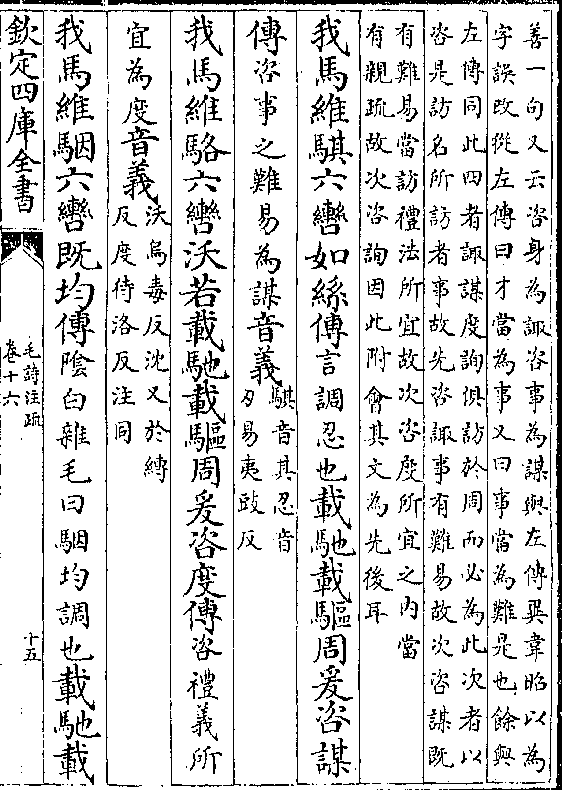 善一句又云咨身為諏咨事為謀與左傳異韋昭以為
字誤改從左傳曰才當為事又曰事當為難是也餘與
左傳同此四者諏謀度詢俱訪於周而必為此次者以
咨是訪名所訪者事故先咨諏事有難易故次咨謀既
有難易當訪禮法所宜故次咨度所宜之内當
有親疏故次咨詢因此附會其文為先後耳
我馬維騏六轡如絲傳言調忍也載馳載驅周爰咨謀
傳咨事之難易為謀音義騏音其忍音
刃易夷豉反
我馬維駱六轡沃若載馳載驅周爰咨度傳咨禮義所
宜為度音義沃烏毒反沈又於縛
反度待洛反注同
我馬維駰六轡既均傳隂白雜毛曰駰均調也載馳載
欽定四庫全書
毛詩注疏
卷十六
十五